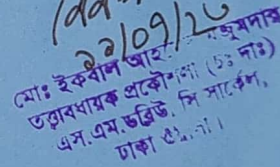 ২২/০৭/২০
মোঃ ইকবাল আহ মজুমদার
তত্ত্বাবধায়ক প্রকৌশলী (চঃ দাঃ)
এস.এম.ডব্লিউ. সি সার্কেল,
ঢাকা